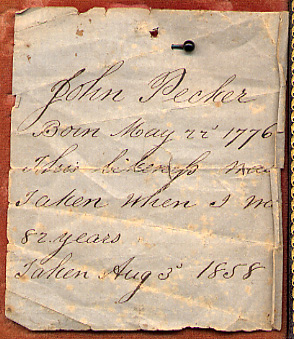 John Pecker
Born May 22d 1776-
This likeness was
Taken when I w
82 years
Taken Aug 3d 1858